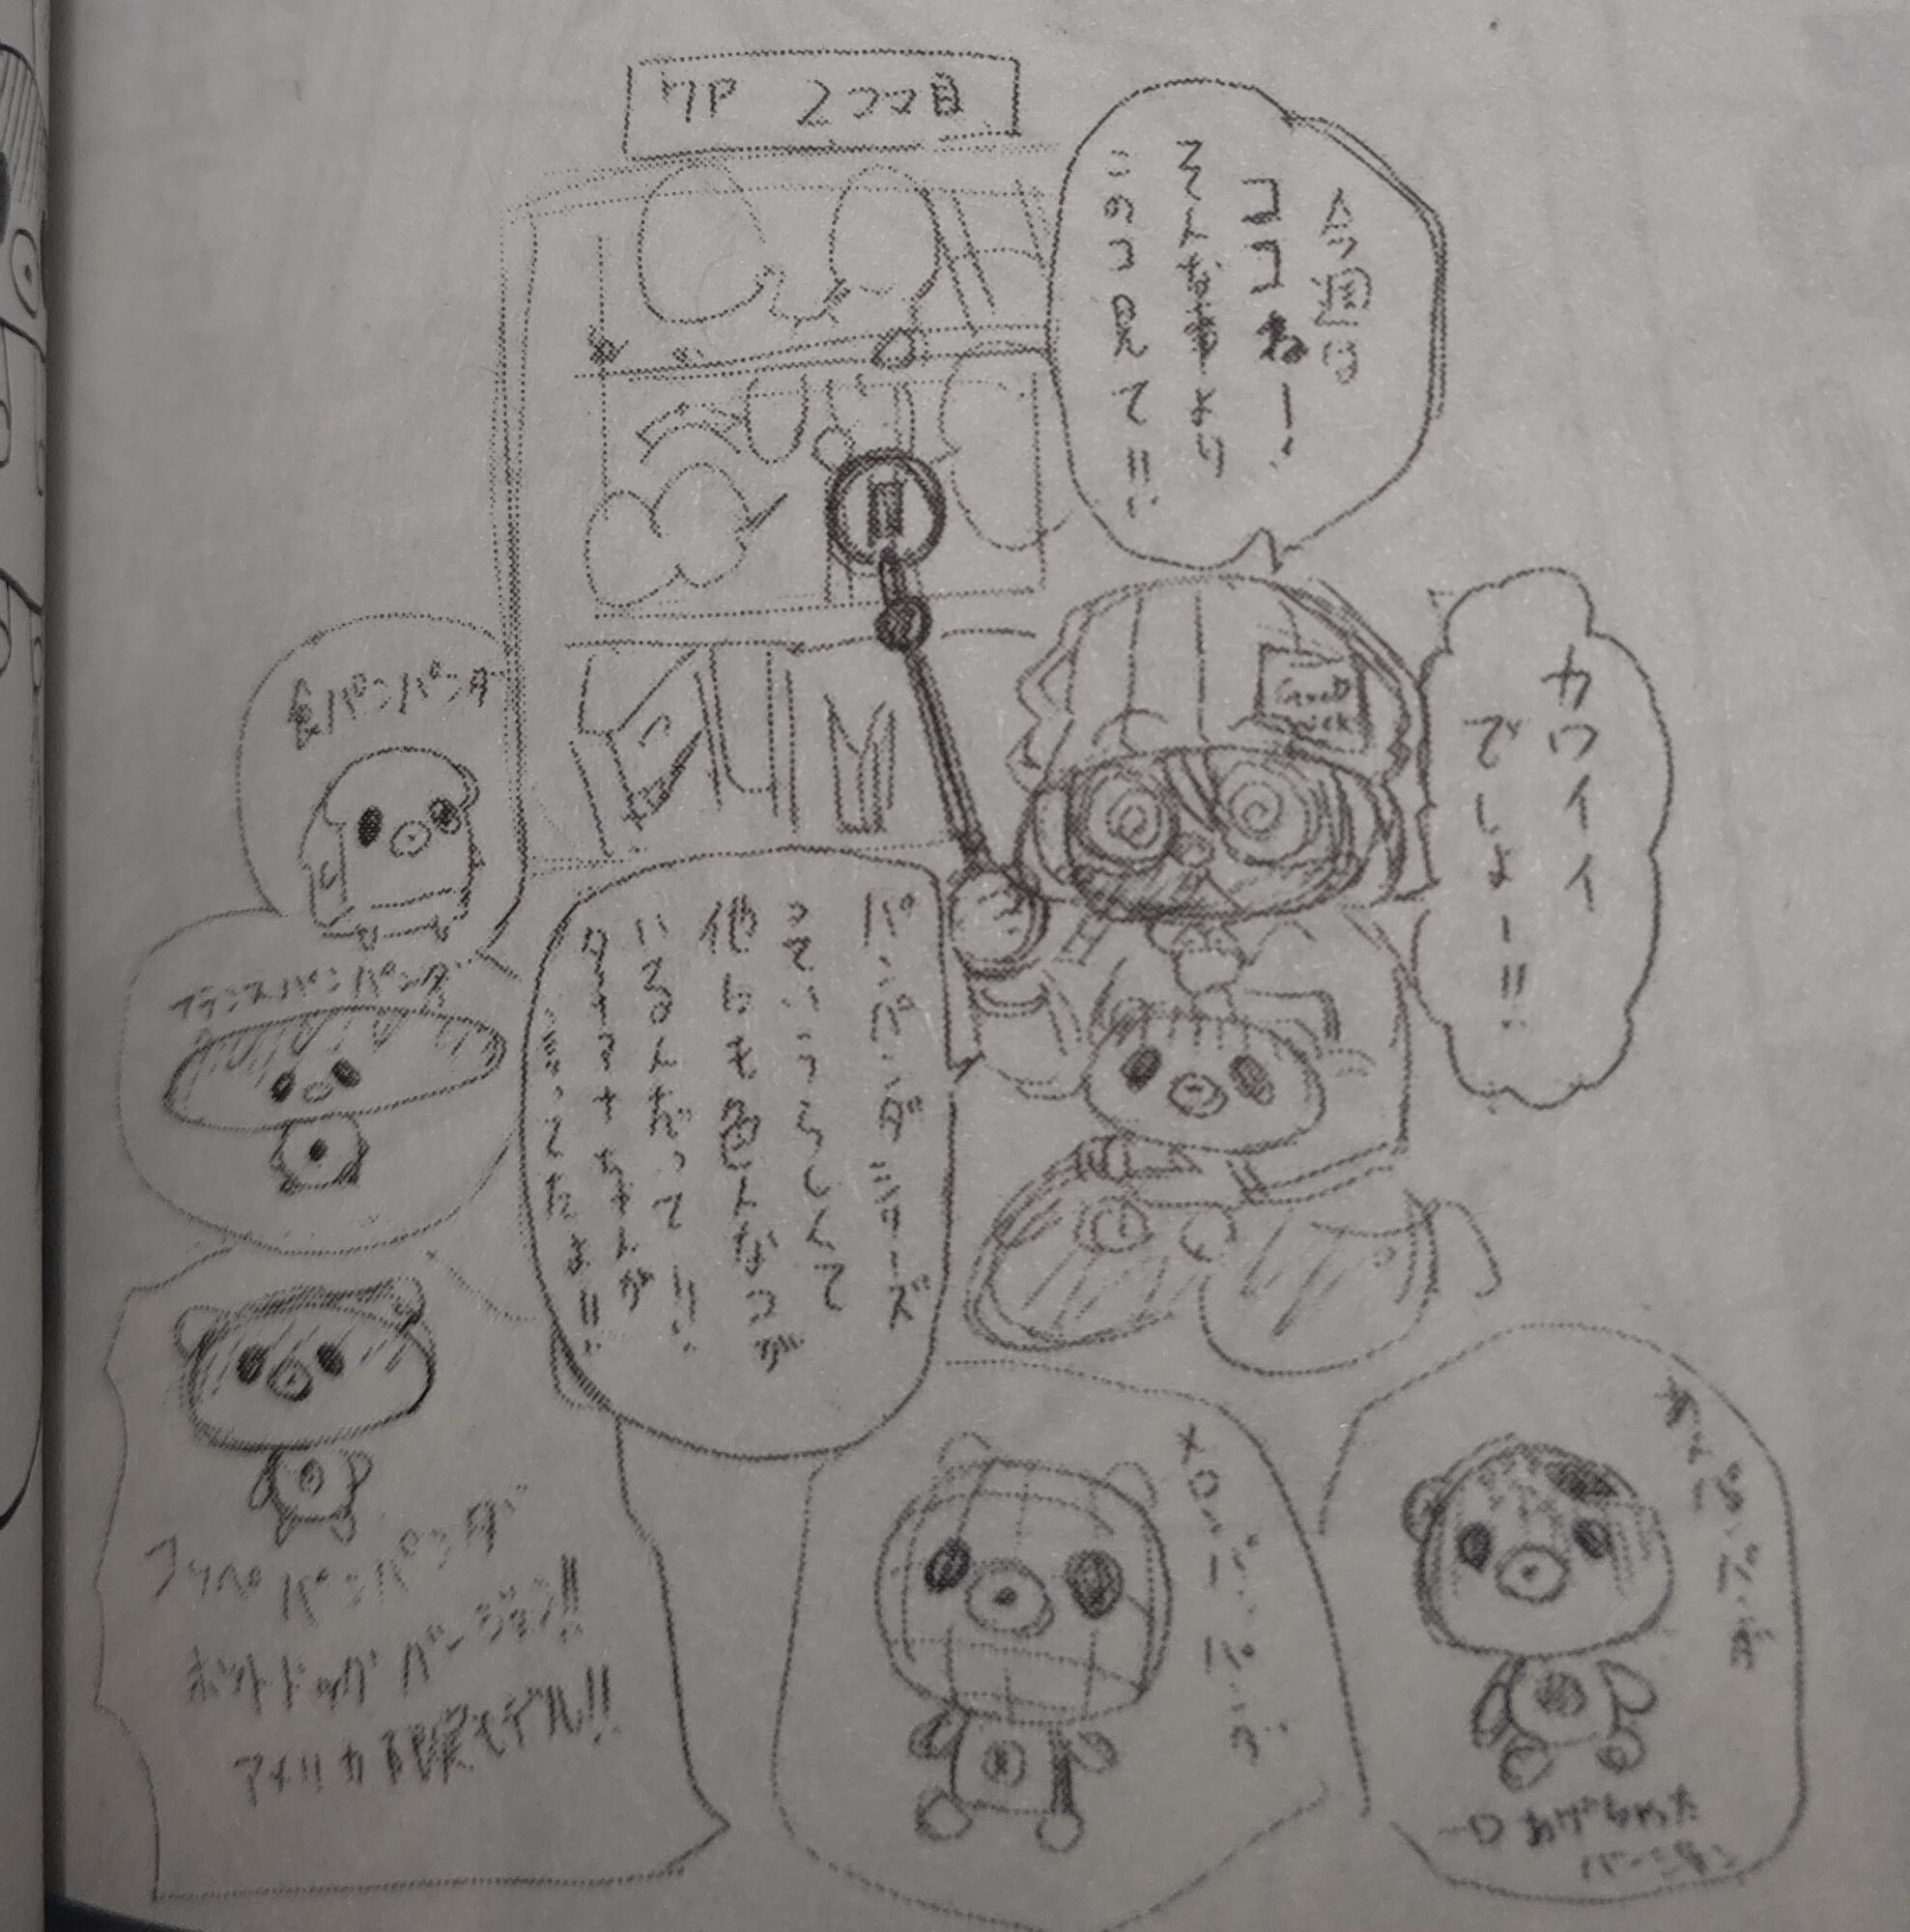 7P 2コマ目
今週は
ココねー!
そんな事より
このコ見て!!
カワイイ
でしょー!!
GOOD
LUCK
パンパンダシリーズ
っていうらしくて
他にも色んなコが
いるんだって!!
食パンパンダ
フランスパンパンダ
コッペパンパンダ
ホットドッグバージョン!!
アメリカ限定モデル!!
メロンパンパンダ
あんパンパンダ